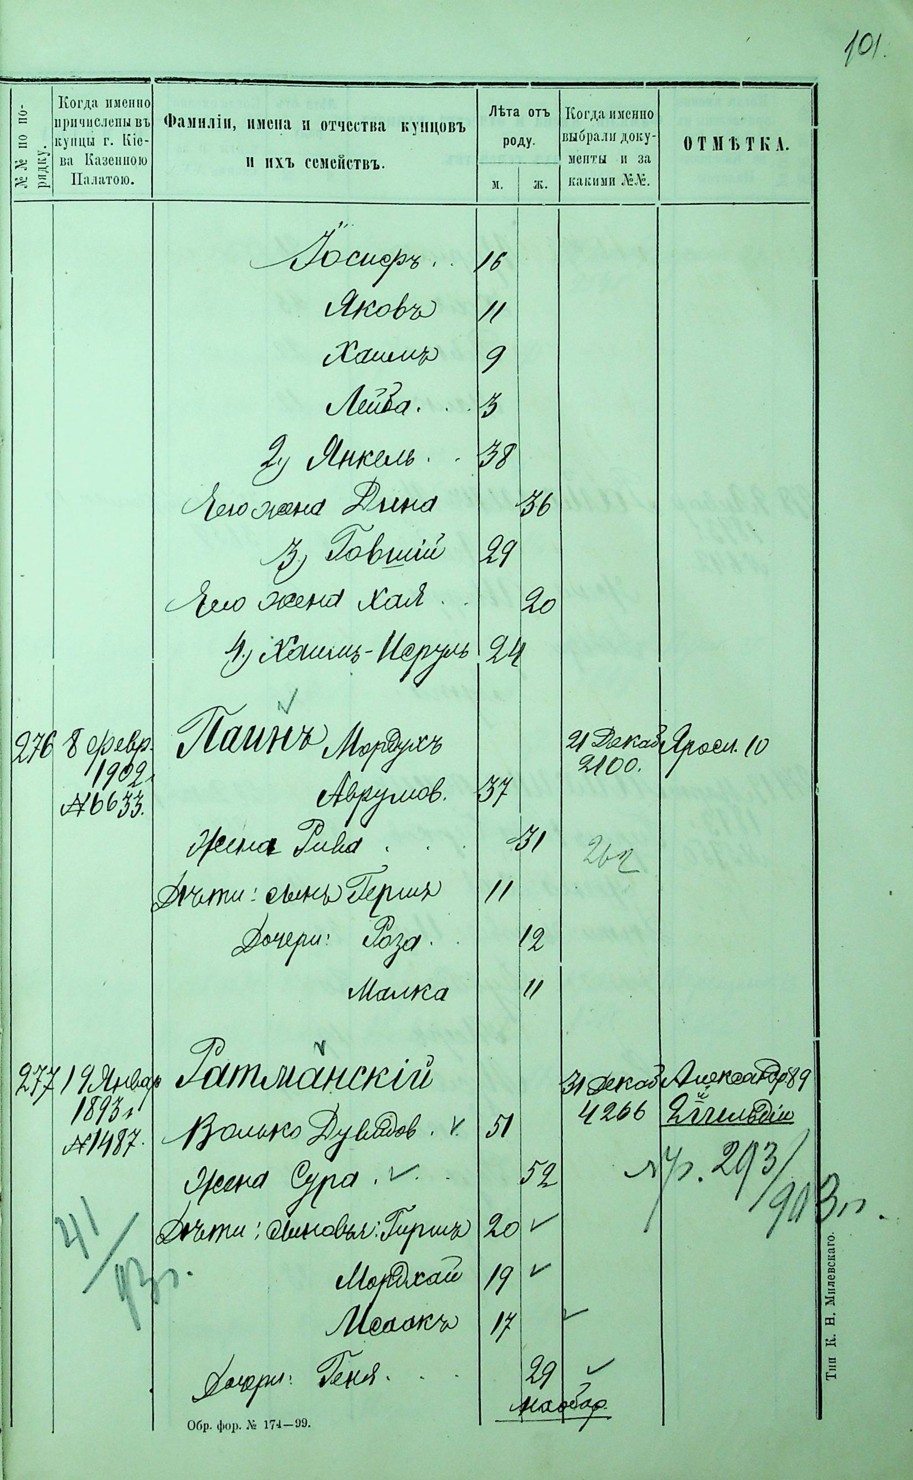 101.
№№ по по-
рядку.
Когда именно
причислены въ
купцы г. Кіе-
ва Казенною
Палатою.
Фамиліи, имена и отчества купцовъ
и ихъ семействъ.
Лѣта отъ
роду.
м. ж.
Когда именно
выбрали доку-
менты и за
какими №№.
ОТМѢТКА.
Іосифъ . . 16
Яковъ 11
Хаимъ 9
Лейба . . 3
2) Янкель . . 38
Его жена Дина 36
3) Говшій 29
Его жена Хая . . 20
4) Хаимъ-Исруль 24
276 8 февр. Паинъ Мордухъ 21 Декаб Яросл. 10
1902 2100.
№ 6633. Аврумов. 37
Жена Рива . . . 31
262
Дѣти: сынъ Гершъ 11
Дочери: Роза . . 12
Малка 11
277 19 Январ Ратманскій 31 Декаб Александр 89
1893 г. 4266
№ 1487. Волько Дувидов. 51
Жена Сура . . 52
пр. 293/903 г.
Дѣти: сыновья: Гиршъ 20
41/93 г.
Мордхай 19
Исаакъ 17
Дочери: Геня . . . 29
на обор.
Обр. фор. № 174—99.
Тип К. Н. Милевскаго.